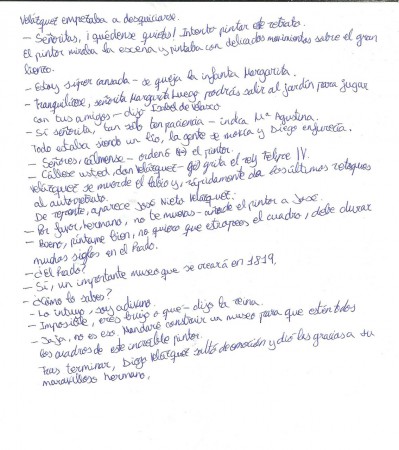 Velázquez empezaba a desquiciarse.
– Señoritas, ¡quédense quietas! Intento pintar el retrato.
El pintor miraba la escena y pintaba con delicados movimientos sobre el gran
lienzo.
– Estoy súper cansada – se queja la infanta Margarita.
– Tranquilícese, señorita Margarita luego podrás salir al jardín para jugar
con tus amigos – dijo Isabel de Velasco
– Sí señorita, tan solo ten paciencia – indica Mª Agustina.
Todo estaba siendo un lío, la gente se movía y Diego enfurecía.
– Señores, cálmense – ordenó el pintor.
– Cállese usted, don Velázquez – grita el rey Felipe IV.
Velázquez se muerde el labio y, rápidamente da los últimos retoques
al autorretrato.
De repente, aparece José Nieto Velázquez:
– Por favor, hermano, no te muevas – añade el pintor a José.
– Bueno, píntame bien, no quiero que estropees el cuadro, debe durar
muchos siglos en el Prado.
– ¿El Prado?
– Sí, un importante museo que se creará en 1819,
– ¿Cómo lo sabes?
– Lo intuyo, soy adivino.
– Imposible, eres brujo o que – dijo la reina.
– Jaja, no es eso. Mandaré construir un museo para que estén todos
los cuadros de este increíble pintor.
Tras terminar, Diego Velázquez saltó de emoción y dio las gracias a su
maravilloso hermano,